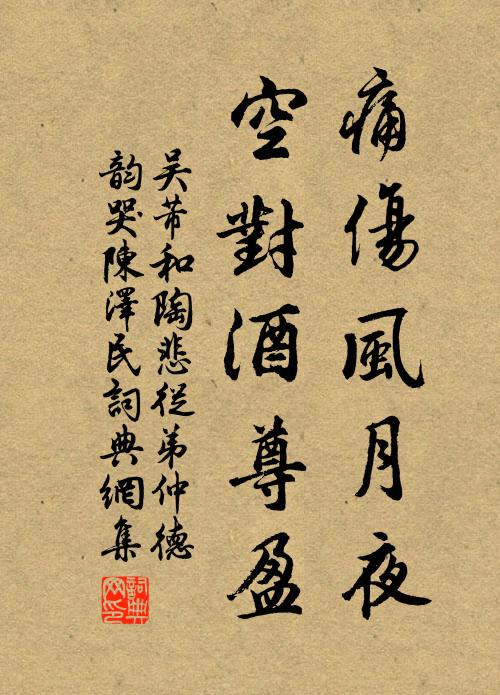 痛傷風月夜
空對酒尊盈
吴芾和陶悲從弟仲德
韵哭陳澤民詞典網集
詞典网印